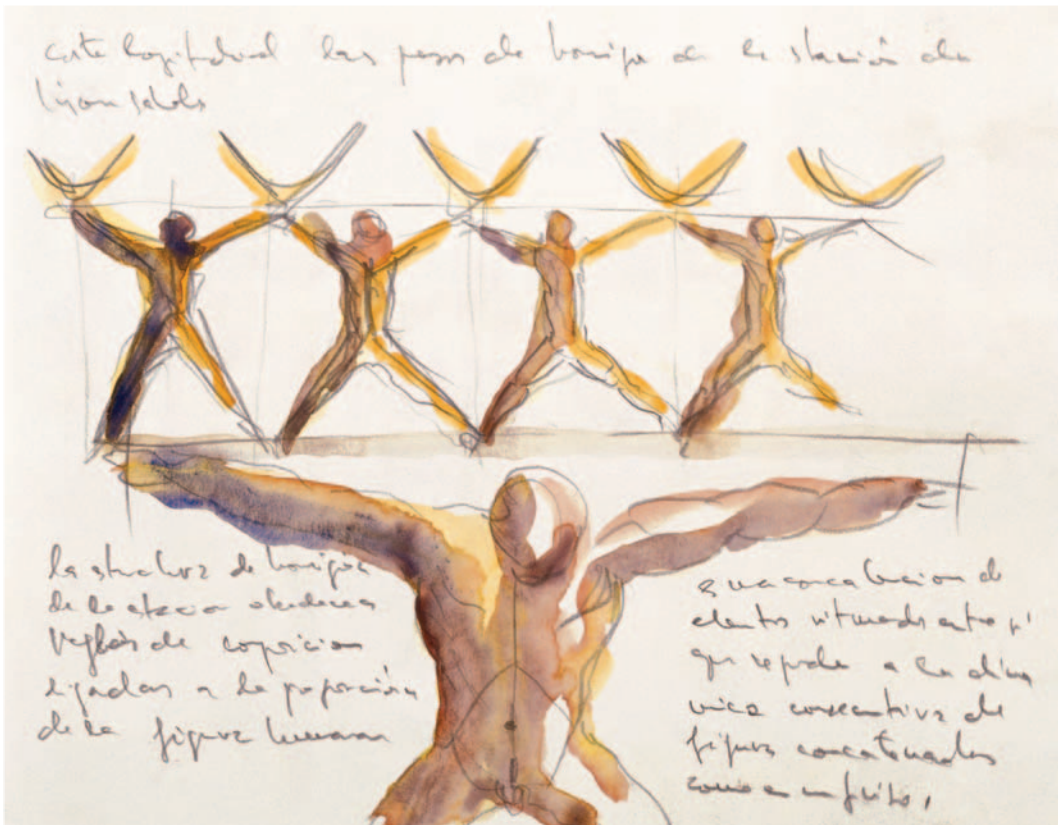 corte longitudinal las pasos de hormigon de la stación de
la structura de hormigon
de la stacion obedece a
reglas de composicion
ligadas a la proporción
de la figura humana
es una concatenacion de
elementos ritmados entre si
que responde a la diná
mica consecutiva de
figuras concatenadas
como en un friso,